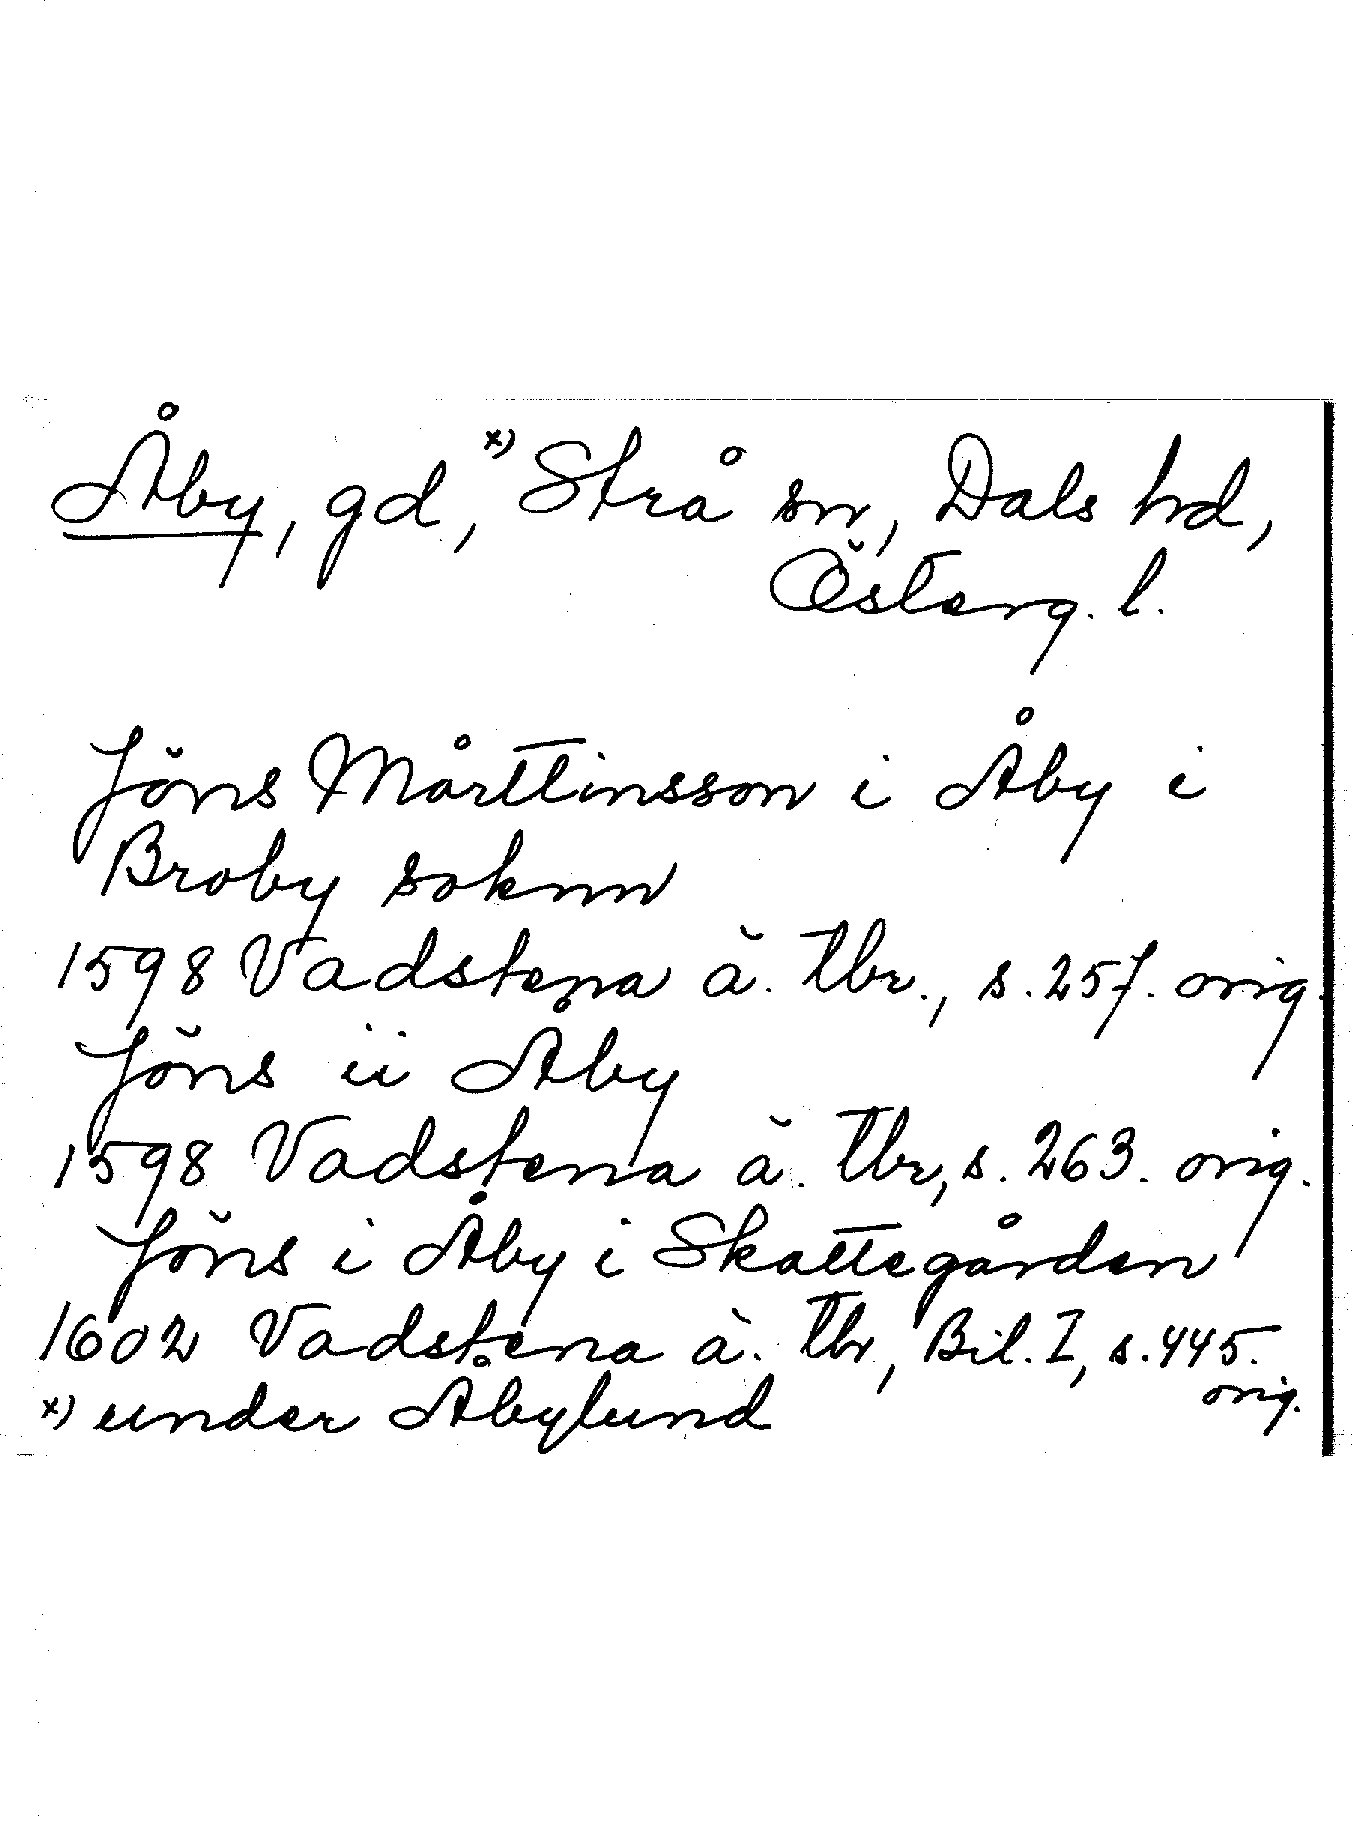 Åby, gd,ˣ⁾ Strå sn, Dals hd,
Österg. l.
Jöns Mårttinsson i Åby i
Broby soknn
1598 Vadstena ä. tbr., s. 257. orig.
Jöns ii Åby
1598 Vadstena ä. tbr, s. 263. orig.
Jöns i Åby i Skattegården
1602 Vadstena ä. tbr, Bil. I, s. 445.
orig.
x) under Åbylund